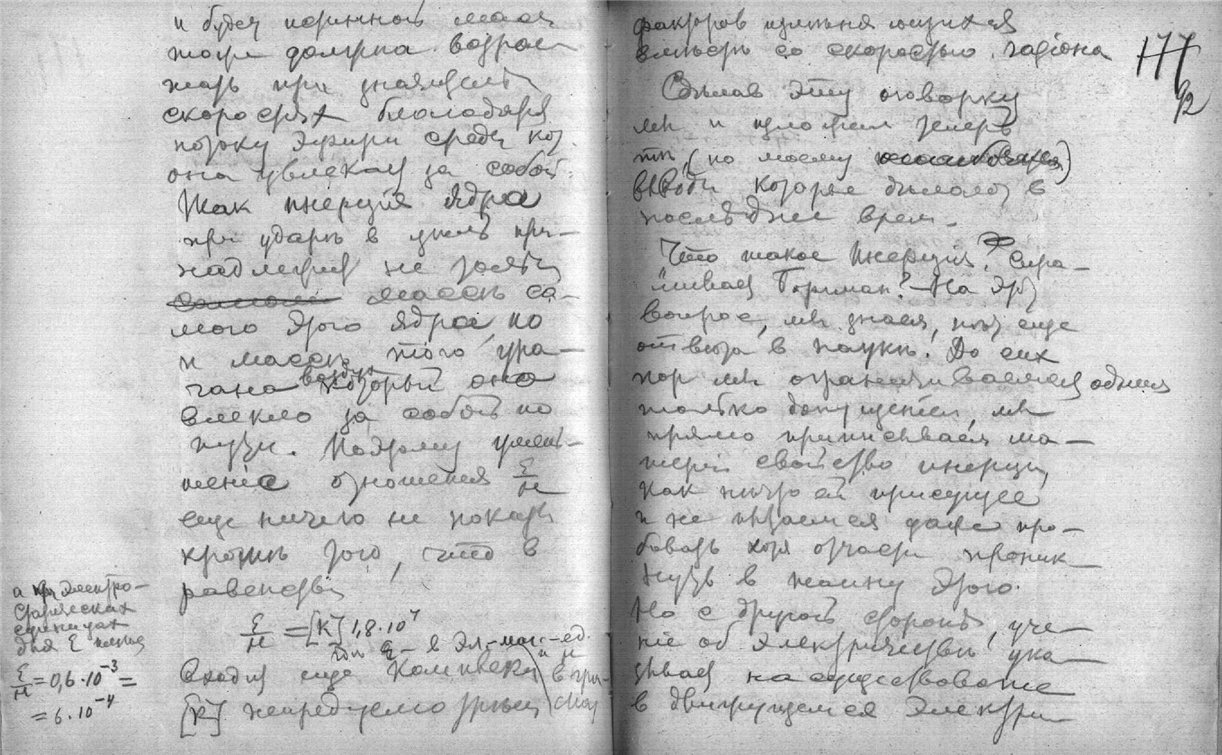 и будет истинной масса
тоже должна возрас-
тать при
скоростях благодаря
потоку эфира среди ко-
его она увлекает за собой.
Так инерция ядра
при ударе в цель при-
надлежит не
массе са-
мого этого ядра, но
и массе того ура-
гана воздуха который оно
влекло за собой по
пути. Поэтому умень-
шение отношения ε/μ
еще ничего не покаж.
кроме того, что в
равенстве
ε/μ = [K] 1,8·10⁷
в эл.-магн.-ед.
входит еще
[K]
а при электро-
статических
единицах
для ε
ε/μ = 0,6·10⁻³ =
= 6·10⁻⁴
177
92
факторов изменяющихся
вместе со скоростью катиона
Сделав эту оговорку
мы и изложим теперь
те, (по моему
выводы которые делались в
последнее время.
Что такое Инерция? Спра-
шивает Борман? — На этот
вопрос, мы знаем, нет еще
ответа в науке. До сих
пор мы ограничиваемся одним
только допущением, мы
прямо приписываем ма-
терии свойство инерции,
как нечто ей присущее
и не пытаемся даже про-
бовать хотя отчасти проник-
нуть в тайну этого.
Но с другой стороны, уче-
ние об электричестве ука-
зывает на существование
в движущемся электри-